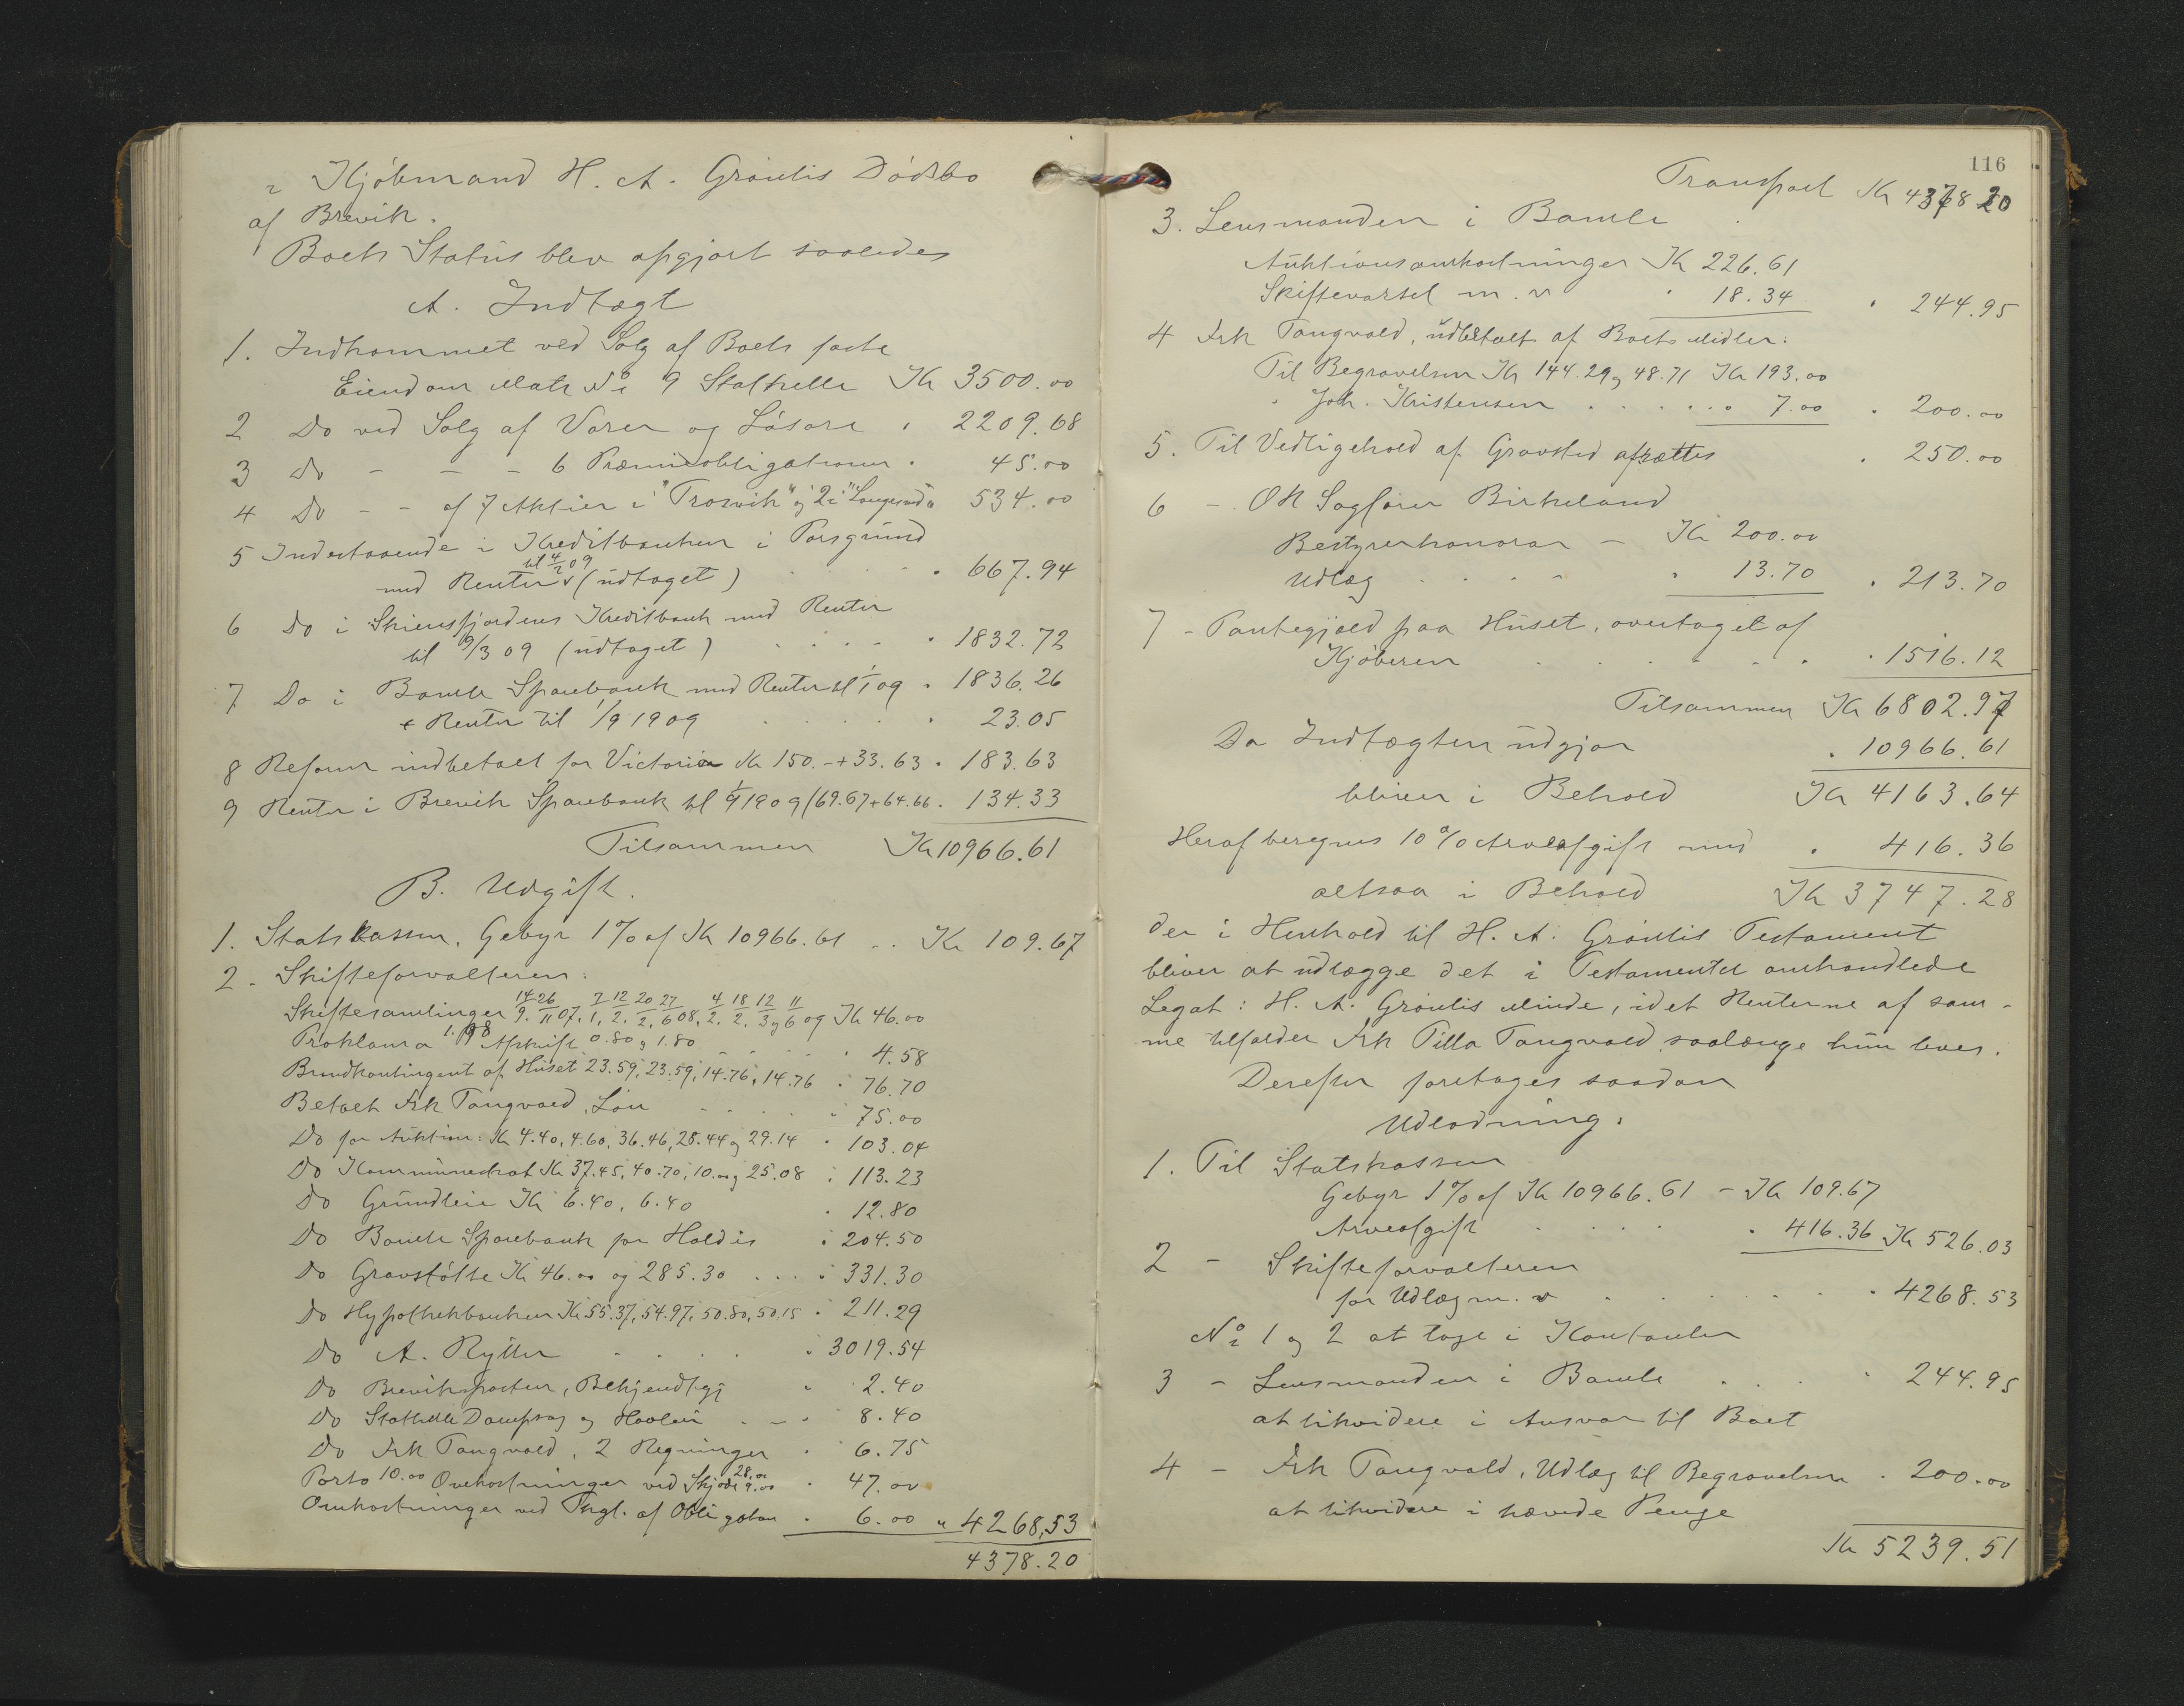 i Kjøbmand H. A. Grøulis Dødsbo
af Brevik.
Boets Status blev opgjort saaledes
A. Indtægt
1. Indkommet ved Salg af Boets faste
Eiendom Matr No 9 Stathelle Kr 3500.00
2 Do ved Salg af Varer og Løsøre " 2209.68
3 Do - - - 6 Præmieobligationer " 45.00
4 Do - - af 7 Aktier i "Trosvik" og 2 i "Langesund" 534.00
5 Indestaaende i Kreditbanken i Porsgrund
med Renter til 4/2 09 (udtaget) . . . " 667.94
6 Do i Skiensfjordens Kreditbank med Renter
til 9/3 09 (udtaget) . . . . " 1832.72
7 Do i Bamle Sparebank med Renter til 1/1 09 " 1836.26
+ Renter til 1/9 1909 . . . . " 23.05
8 Reform indbetalt for Victoria Kr 150.- + 33.63 " 183.63
9 Renter i Brevik Sparebank til 1/9 1909 (69.67 + 64.66 " 134.33
Tilsammen Kr 10966.61
B. Udgift.
1. Statskassen, Gebyr 1% af Kr 10966.61 .. Kr 109.67
2. Skifteforvalteren:
Skiftesamlinger 14/9. 26/11 07, 7/1, 12/2. 20/2, 27/6 08, 4/2. 18/2. 12/3 og 11/6 09 Kr 46.00
Proklama 1.98 Afskrift 0.80 og 1.80 . . . . " 4.58
Brandkontingent af Huset 23.59, 23.59, 14.76, 14.76 " 76.70
Betalt Frk Tangvald, Løn . . . . " 75.00
Do for Auktion: Kr 4.40, 4.60, 36.46, 28.44 og 29.14 " 103.04
Do Kommuneskat Kr 37.45, 40.70, 10.00 og 25.08 " 113.23
Do Grundleie Kr 6.40, 6.40 " 12.80
Do Bamle Sparebank for Haldis " 204.50
Do Gravstøtte Kr 46.00 og 285.30 . . . " 331.30
Do Hypothekbanken Kr 55.37, 54.97, 50.80, 50.15 " 211.29
Do A. Rytter . . . . " 3019.54
Do Breviksposten, Bekjendtgj " 2.40
Do Stathelle Dampsag og Høvleri . - " 8.40
Do Frk Tangvald, 2 Regninger " 6.75
Porto 10.00 Omkostninger ved Skjøde 28.00 9.00 " 47.00
Omkostninger ved Thgl. af Obligation " 6.00 " 4268,53
4378.20
116
Transport Kr 4378 20
3. Lensmanden i Bamle
Auktionsomkostninger Kr 226.61
Skiftevarsel m. v " 18.34 " 244.95
4 Frk Tangvald, udbetalt af Boets Midler:
Til Begravelsen Kr 144.29 og 48.71 Kr 193.00
" Joh. Kristensen . . . . . " 7.00 " 200.00
5. Til Vedligehold af Gravsted afsættes " 250.00
6 - OR Sagfører Birkeland
Bestyrerhonorar - Kr 200.00
Udlæg . . . . " 13.70 " 213.70
7 - Pantegjæld paa Huset, overtaget af
Kjøberen . . . . . . " 1516.12
Tilsammen Kr 6802.97
Da Indtægten udgjør " 10966.61
bliver i Behold Kr 4163.64
Heraf beregnes 10% Arveafgift med " 416.36
altsaa i Behold Kr 3747.28
der i Henhold til H. A. Grøulis Testament
bliver at udlægge det i Testamentet omhandlede
Legat: H. A. Grøulis Minde, idet Renterne af sam-
me tilfalder Frk Tilla Tangvald saalænge hun lever.
Derefter foretages saadan
Udlodning.
1. Til Statskassen
Gebyr 1% af Kr 10966.61 - Kr 109.67
Arveafgift . . . . " 416.36 Kr 526.03
2 - Skifteforvalteren
for Udlæg m. v . . . . . . " 4268.53
No 1 og 2 at tage i Kontanter
3 - Lensmanden i Bamle . . . " 244.95
at likvidere i Ansvar til Boet
4 - Frk Tangvald, Udlæg til Begravelsen " 200.00
at likvidere i hævede Penge
Kr 5239.51